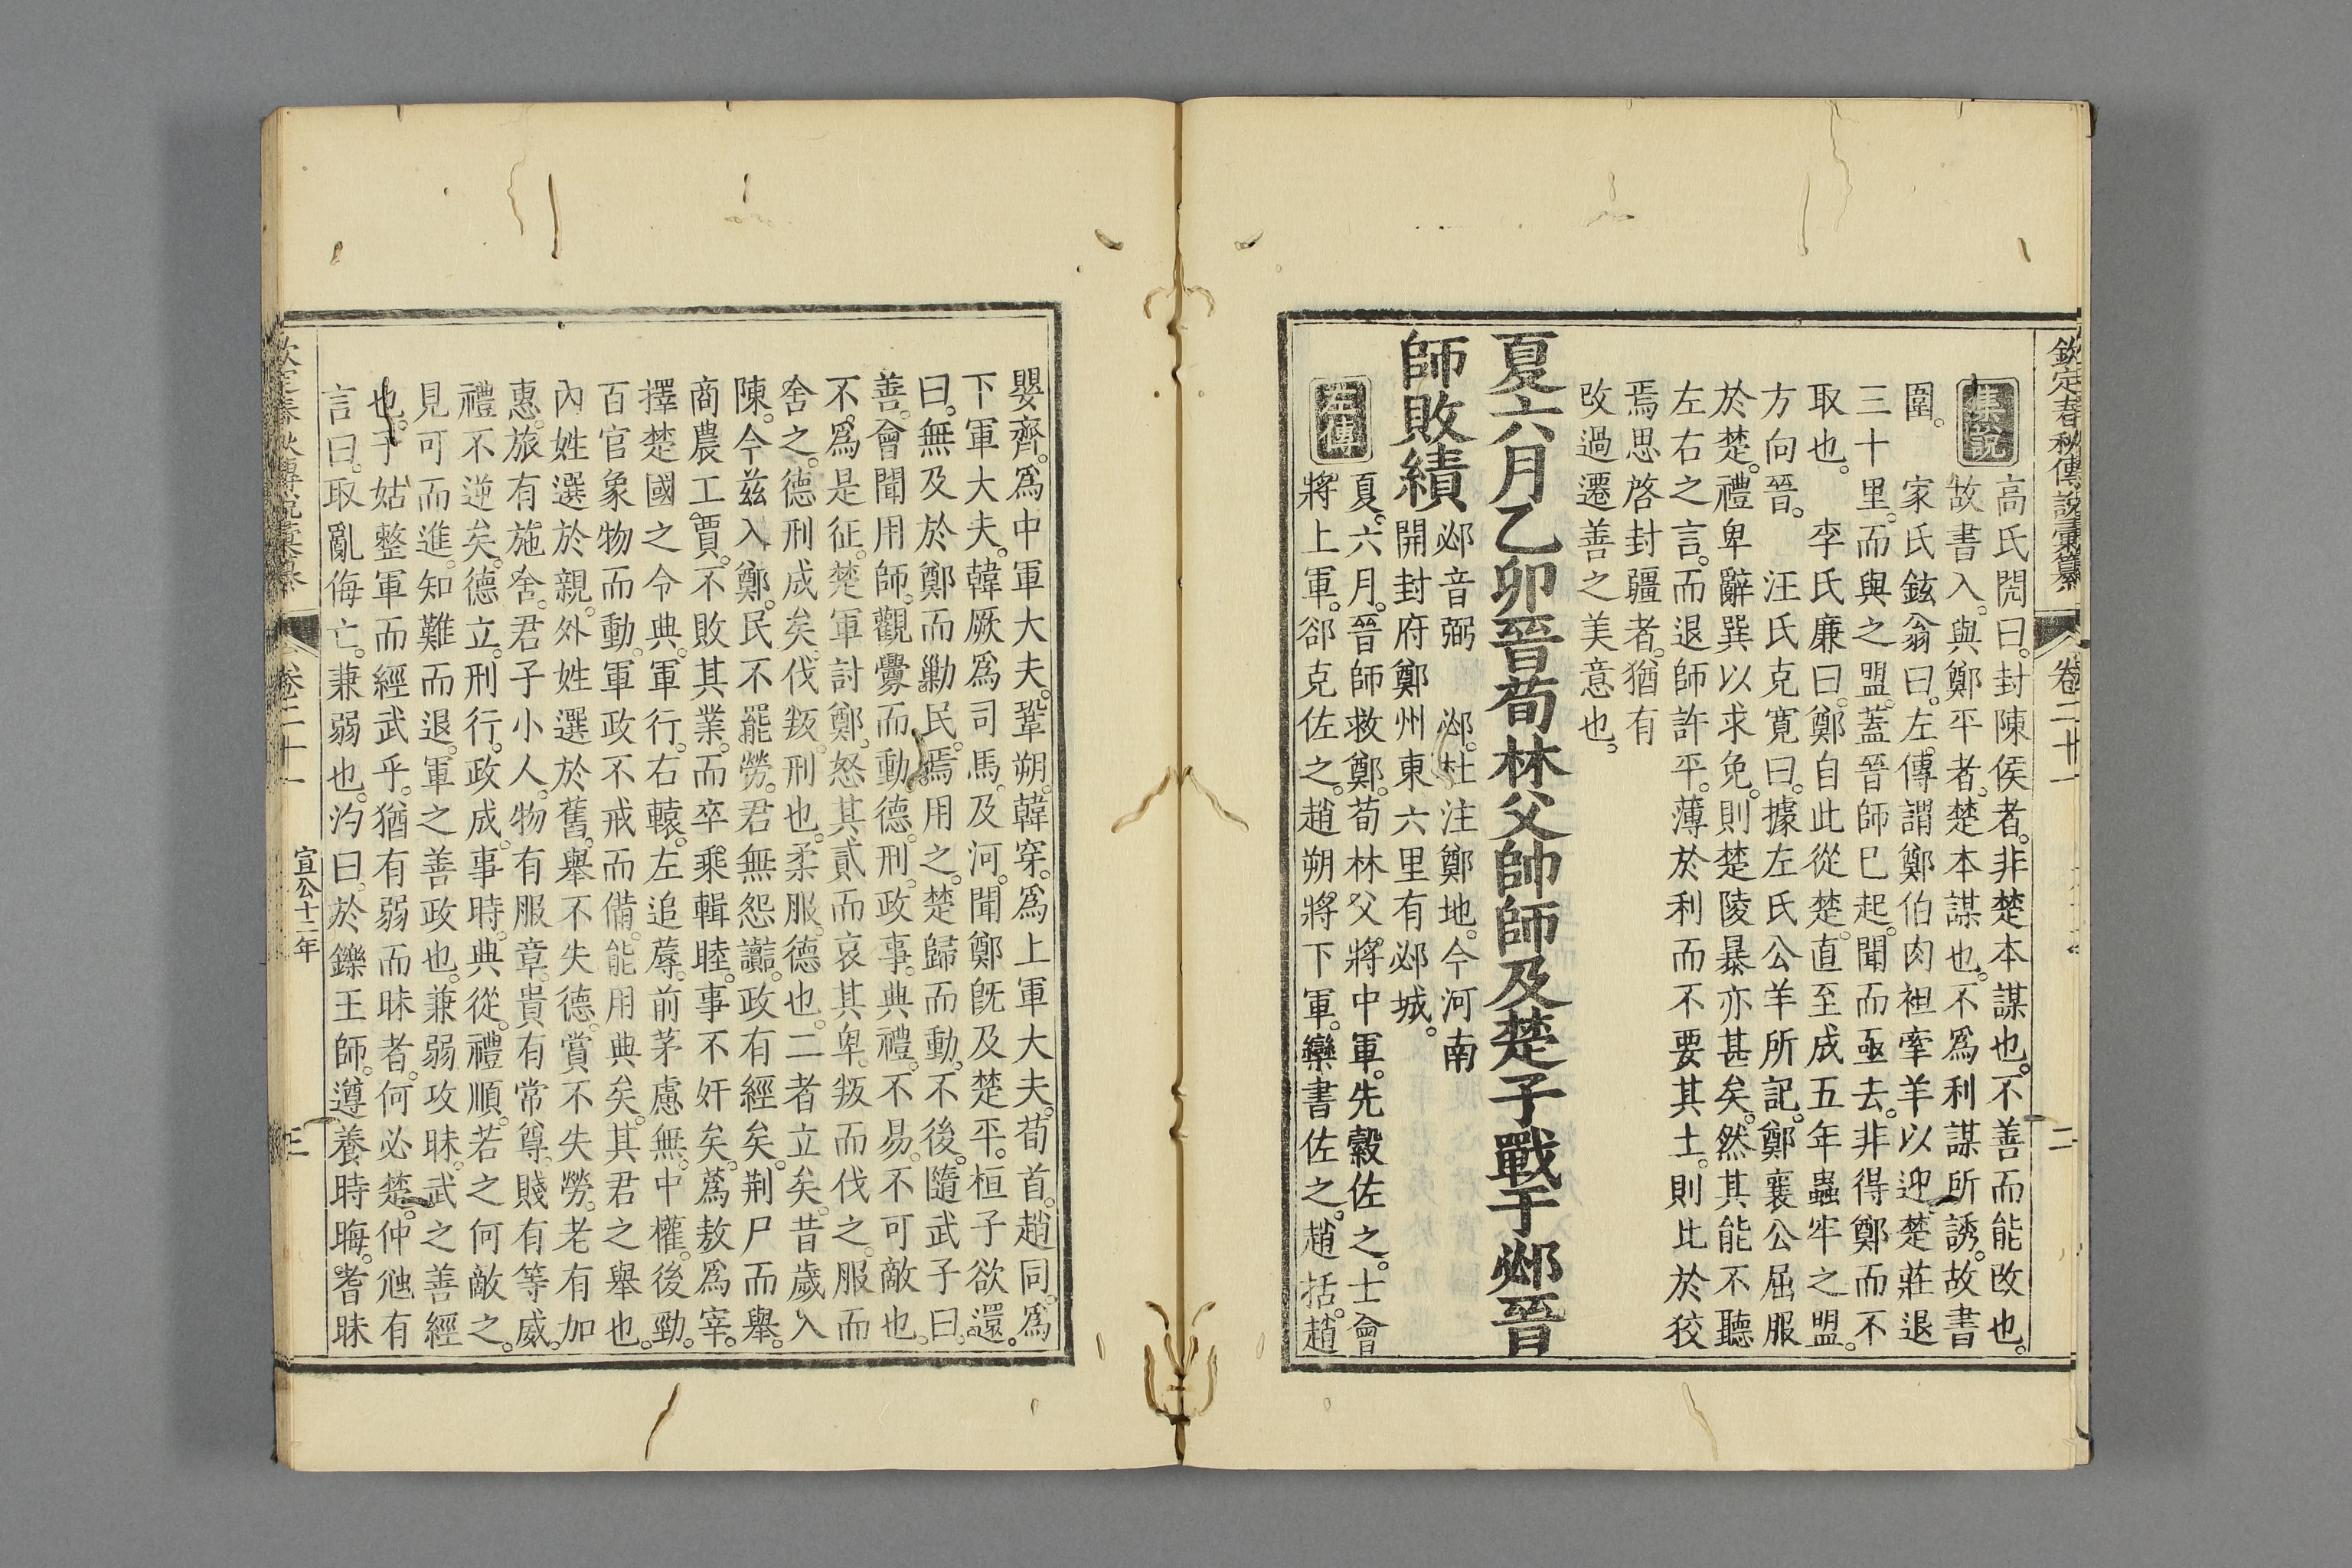 欽定春秋傳說彙纂 卷二十一 二
集說
高氏閌曰。封陳侯者。非楚本謀也。不善而能改也。
故書入。與鄭平者。楚本謀也。不爲利謀所誘。故書
圍。 家氏鉉翁曰。左傳謂鄭伯肉袒牽羊以迎。楚莊退
三十里。而與之盟。蓋晉師已起。聞而亟去。非得鄭而不
取也。 李氏廉曰。鄭自此從楚。直至成五年蟲牢之盟。
方向晉。 汪氏克寬曰。據左氏公羊所記。鄭襄公屈服
於楚。禮卑辭巽以求免。則楚陵暴亦甚矣。然其能不聽
左右之言。而退師許平。薄於利而不要其土。則比於狡
焉思啓封疆者。猶有
改過遷善之美意也。
夏六月乙卯晉荀林父帥師及楚子戰于邲晉
師敗績
邲音弼 邲。杜注鄭地。今河南
開封府鄭州東六里有邲城。
左傳
夏。六月。晉師救鄭。荀林父將中軍。先縠佐之。士會
將上軍。郤克佐之。趙朔將下軍。欒書佐之。趙括。趙
嬰齊。爲中軍大夫。鞏朔。韓穿。爲上軍大夫。荀首。趙同。爲
下軍大夫。韓厥爲司馬。及河。聞鄭旣及楚平。桓子欲還。
曰。無及於鄭而勦民。焉用之。楚歸而動。不後。隨武子曰。
善。會聞用師。觀釁而動。德。刑。政。事。典禮。不易。不可敵也。
不。爲是征。楚軍討鄭。怒其貳而哀其卑。叛而伐之。服而
舍之。德刑成矣。伐叛。刑也。柔服。德也。二者立矣。昔歲入
陳。今茲入鄭。民不罷勞。君無怨讟。政有經矣。荆尸而舉。
商農工。賈。不敗其業。而卒乘輯睦。事不奸矣。蔿敖爲宰。
擇楚國之令典。軍行。右轅。左追蓐。前茅慮無。中權。後勁。
百官象物而動。軍政不戒而備。能用典矣。其君之舉也。
內姓選於親。外姓選於舊。舉不失德。賞不失勞。老有加
惠。旅有施舍。君子小人。物有服章。貴有常尊。賤有等威。
禮不逆矣。德立。刑行。政成。事時。典從。禮順。若之何敵之。
見可而進。知難而退。軍之善政也。兼弱攻昧。武之善經
也。子姑整軍而經武乎。猶有弱而昧者。何必楚。仲虺有
言曰。取亂侮亡。兼弱也。汋曰。於鑠王師。遵養時晦。耆昧
欽定春秋傳說彙纂 卷二十一 宣公十二年 三